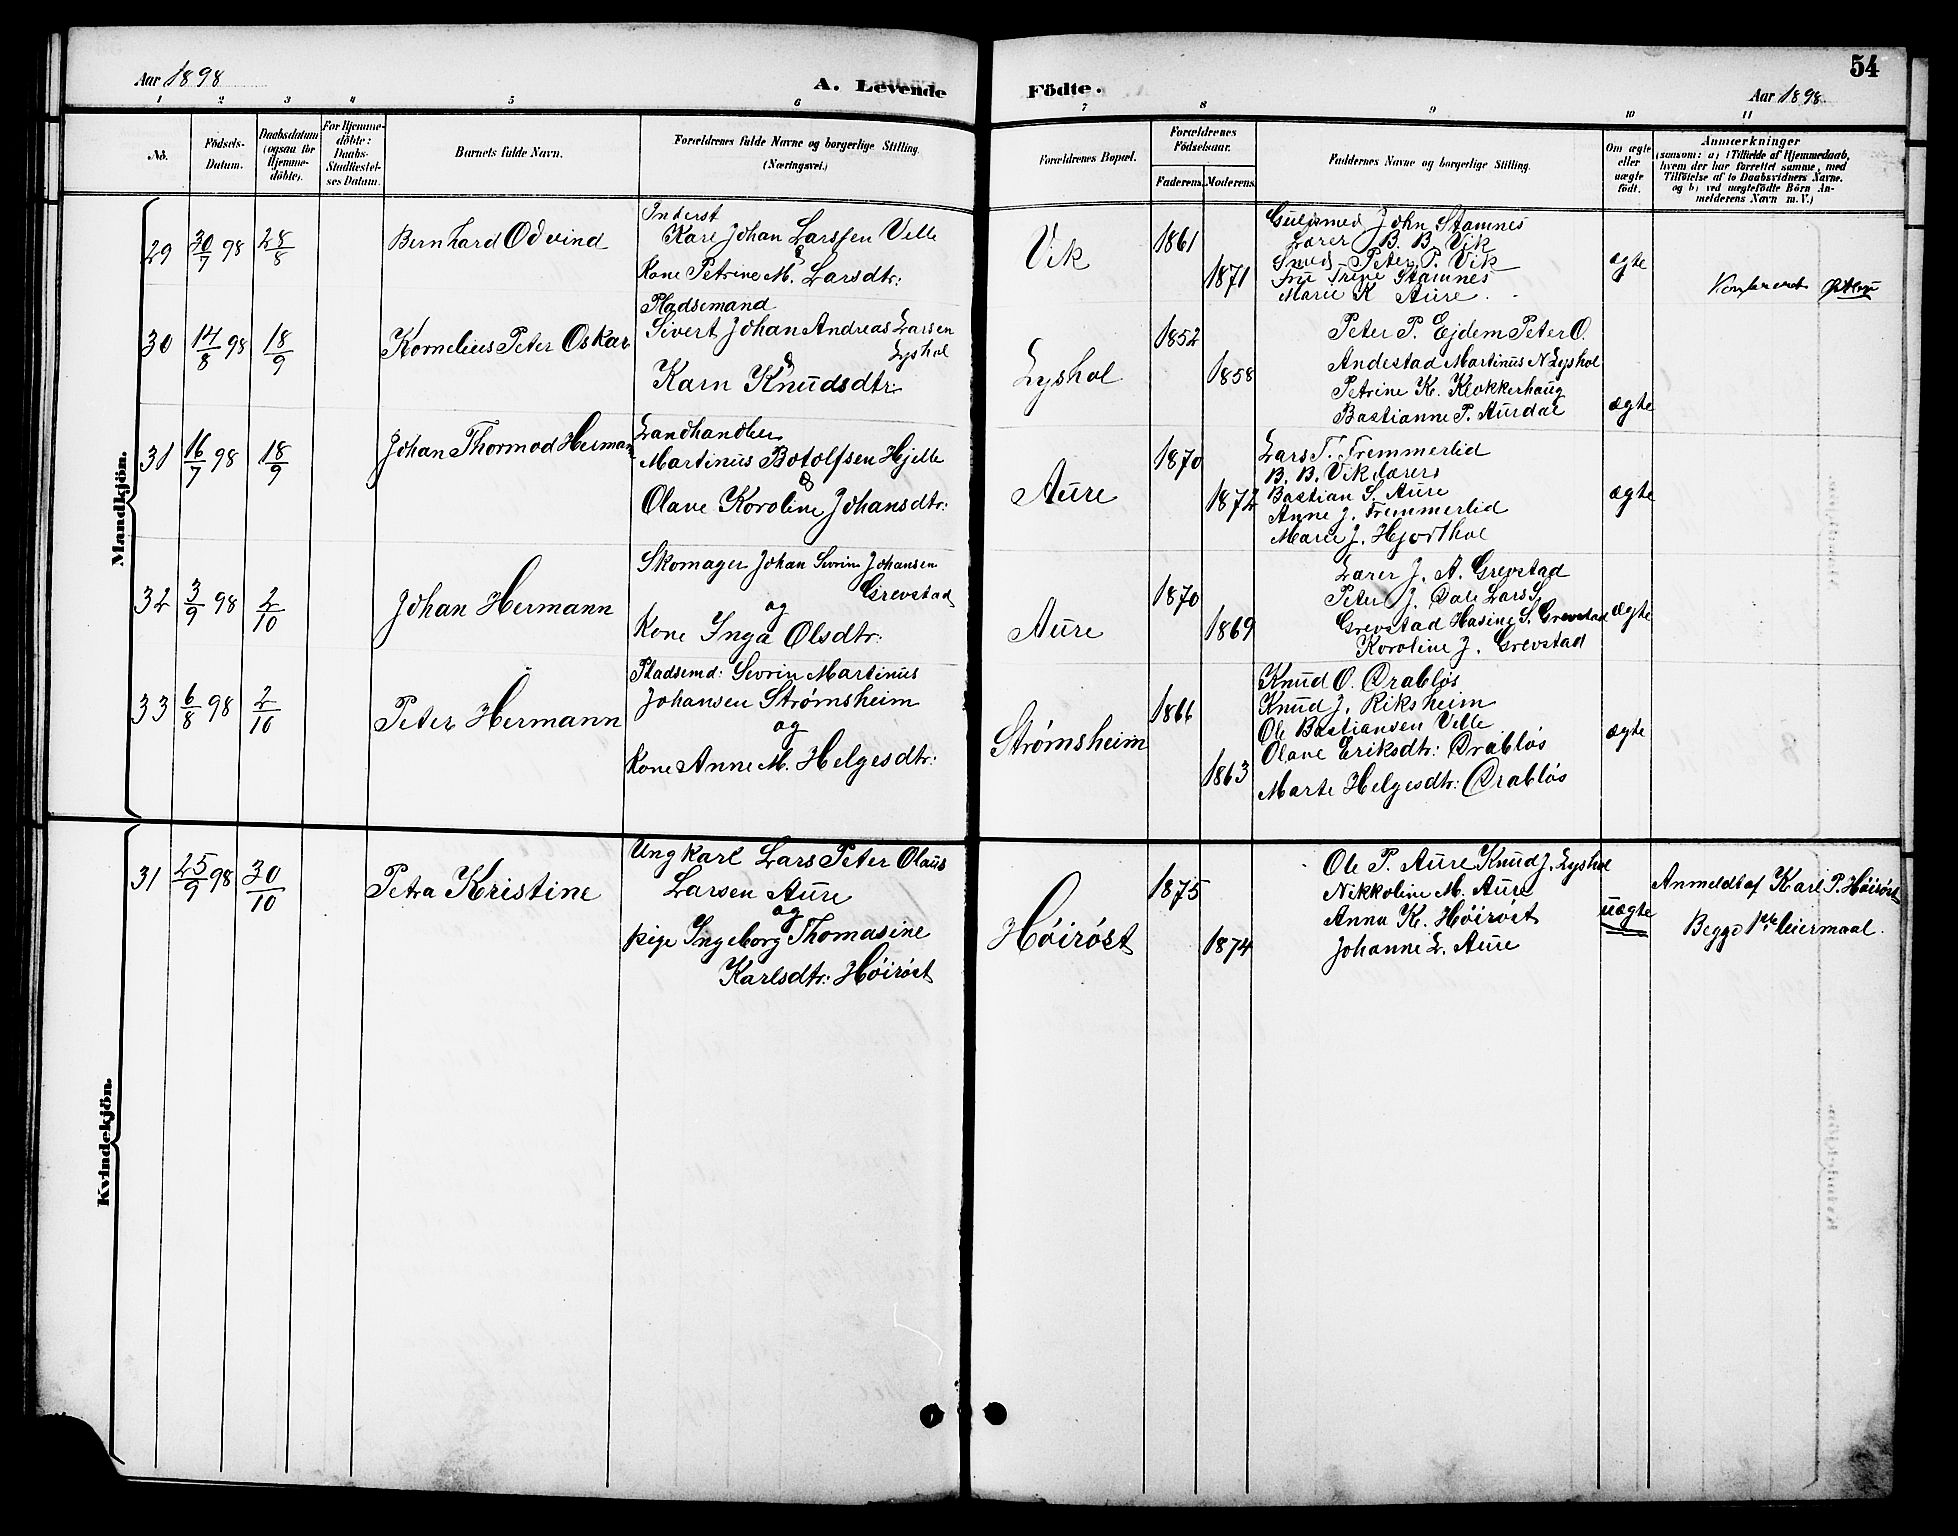 54
Aar 1898
A. Levende
Födte.
Aar 1898
1 2 3 4 5 6 7 8 9 10 11
No.
Födsels-
Datum.
Daabsdatum
(ogsaa for
Hjemme-
döbte).
For Hjemme-
döbte:
Daabs-
Stadfæstel-
ses Datum.
Barnets fulde Navn.
Forældrenes fulde Navne og borgerlige Stilling.
(Næringsvei.)
Forældrenes Bopæl.
Forældrenes
Födselsaar.
Faderens.
Moderens.
Faddernes Navne og borgerlige Stilling.
Om ægte
eller
uægte
födt.
Anmærkninger
(saasom: a) i Tilfælde af Hjemmedaab,
hvem der har forrettet samme, med
Tilföielse af to Daabsvidners Navne.
og b) ved uægtefödte Börn An-
melderens Navn m. V.)
Mandkjön.
29
30/7 98
28/8
Bernhard Odvind
Inderst
Karl Johan Larssen Velle
&
Kone Petrine M. Larsdtr:
Vik
1861
1871
John Stamnes
Lærer B. B. Vik
Smed Peter P. Vik
Fru Trine Stamnes
Marie K Aure
ægte
30
14/8 98
18/9
Kornelius Peter Oskar
Pladsemand
Sivert Johan Andreas Larsen
Lyshol
&
Karn Knudsdtr
Lyshol
1852
1858
Peter P. Ejdem Peter O.
Andestad Martinus N Lyshol
Petrine K. Klokkerhaug
Bastianne P. Aurdal
ægte
31
16/7 98
18/9
Johan Thormod Herman
Landhandler
Martinus Botolfsen Hjelle
&
Olave Koroline Johansdtr:
Aure
1870
1872
Lars T. Fremmerlid
B. B. Vik lærer
Bastian S. Aure
Anne J. Fremmerlid
Marie J. Hjorthol
ægte
32
3/9 98
2/10
Johan Hermann
Skomager Johan Sivrin Johansen
Grevstad
og
Kone Inga Olsdtr:
Aure
1870
1869
Lærer J. A. Grevstad
Peter J. Dale Lars S.
Grevstad Hasine S. Grevstad
Koroline J. Grevstad
ægte
33
6/8 98
2/10
Peter Hermann
Pladsemd: Sivrin Martinus
Johansen Strømsheim
og
Kone Anne M. Helgesdtr:
Strømsheim
1866
1863
Knud O. Drabløs
Knud J. Riksheim
Ole Bastiansen Velle
Olave Eriksdtr: Drabløs
Marte Helgesdtr: Drabløs
ægte
Kvindekjön.
31
25/9 98
30/10
Petra Kristine
Ungkarl Lars Peter Olaus
Larsen Aure
og
pige Ingeborg Thomasine
Karlsdtr: Høirøst
Høirøst
1875
1874
Ole P. Aure Knud J. Lyshol
Nikkoline M. Aure
Anna K. Høirøst
Johanne L. Aure
uægte
Anmeldt af Karl P. Høirøst
Begge 1ste leiermaal.